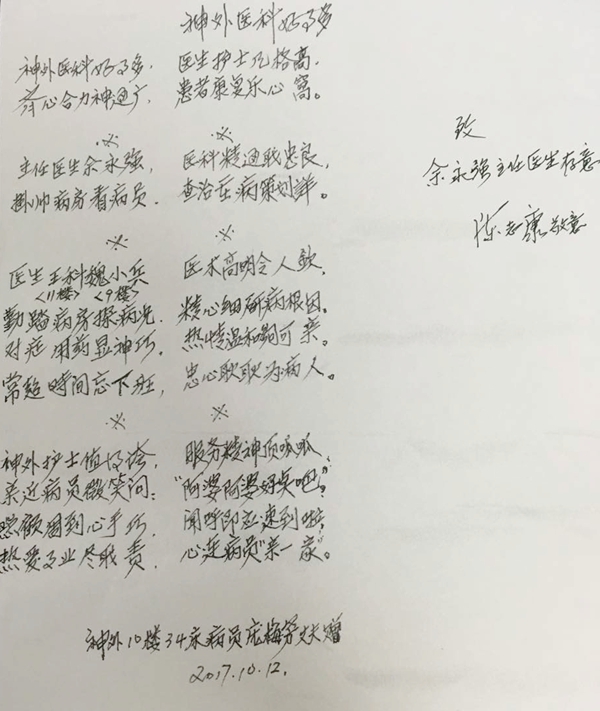 神外医科好事多
神外医科好事多, 医生护士人格高。
齐心合力神通广, 患者康复乐心窝。
※ ※
主任医生余永强, 医科精通职忠良,
挂帅病房看病员. 查治在病策划详。
※ ※
医生王科魏小兵 医术高明令人钦,
<11楼> <9楼>
勤踏病房探病况. 精心细研病根因。
对症用药显神巧. 热情温和询可亲。
常超时间忘下班, 忠心耿耿为病人。
※ ※
神外护士值得夸, 服务精神顶呱呱、
亲近病员微笑问: "阿婆阿婆好点吧?"
照顾周到心手巧. 闻呼即应速到啦,
热爱事业尽职责, 心连病员"亲一家"。
神外10楼34床病员 丈夫赠
2017.10.12.
致
余永强主任医生存意
陈志康敬意